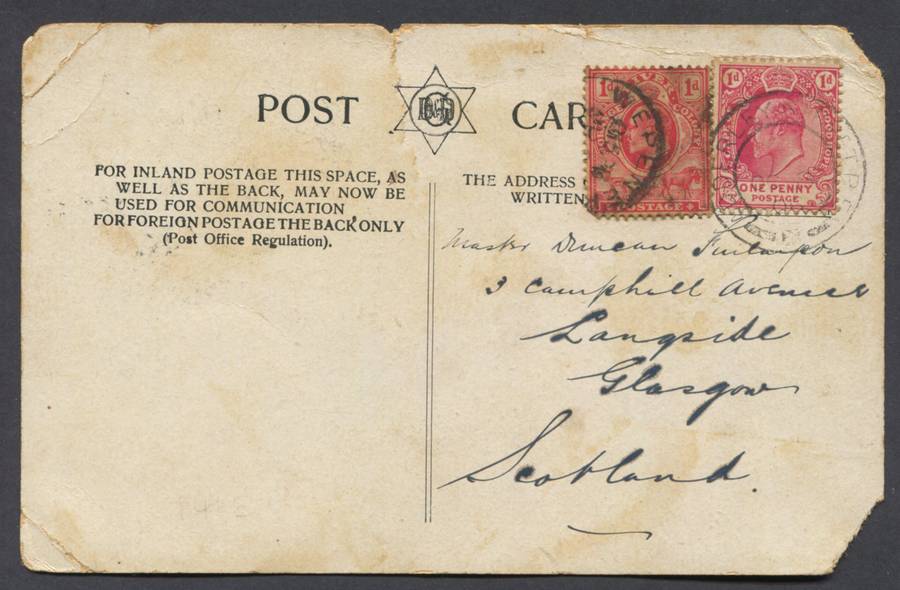 POST CAR
FOR INLAND POSTAGE THIS SPACE, AS
WELL AS THE BACK, MAY NOW BE
USED FOR COMMUNICATION
FOR FOREIGN POSTAGE THE BACK ONLY
(Post Office Regulation).
THE ADDRESS
WRITTEN
1d 1d
WEPENER
POSTAGE
1d 1d
GOOD HOPE
ONE PENNY
POSTAGE
Master Duncan Finlayson
3 Camphill Avenue
Langside
Glasgow
Scotland.